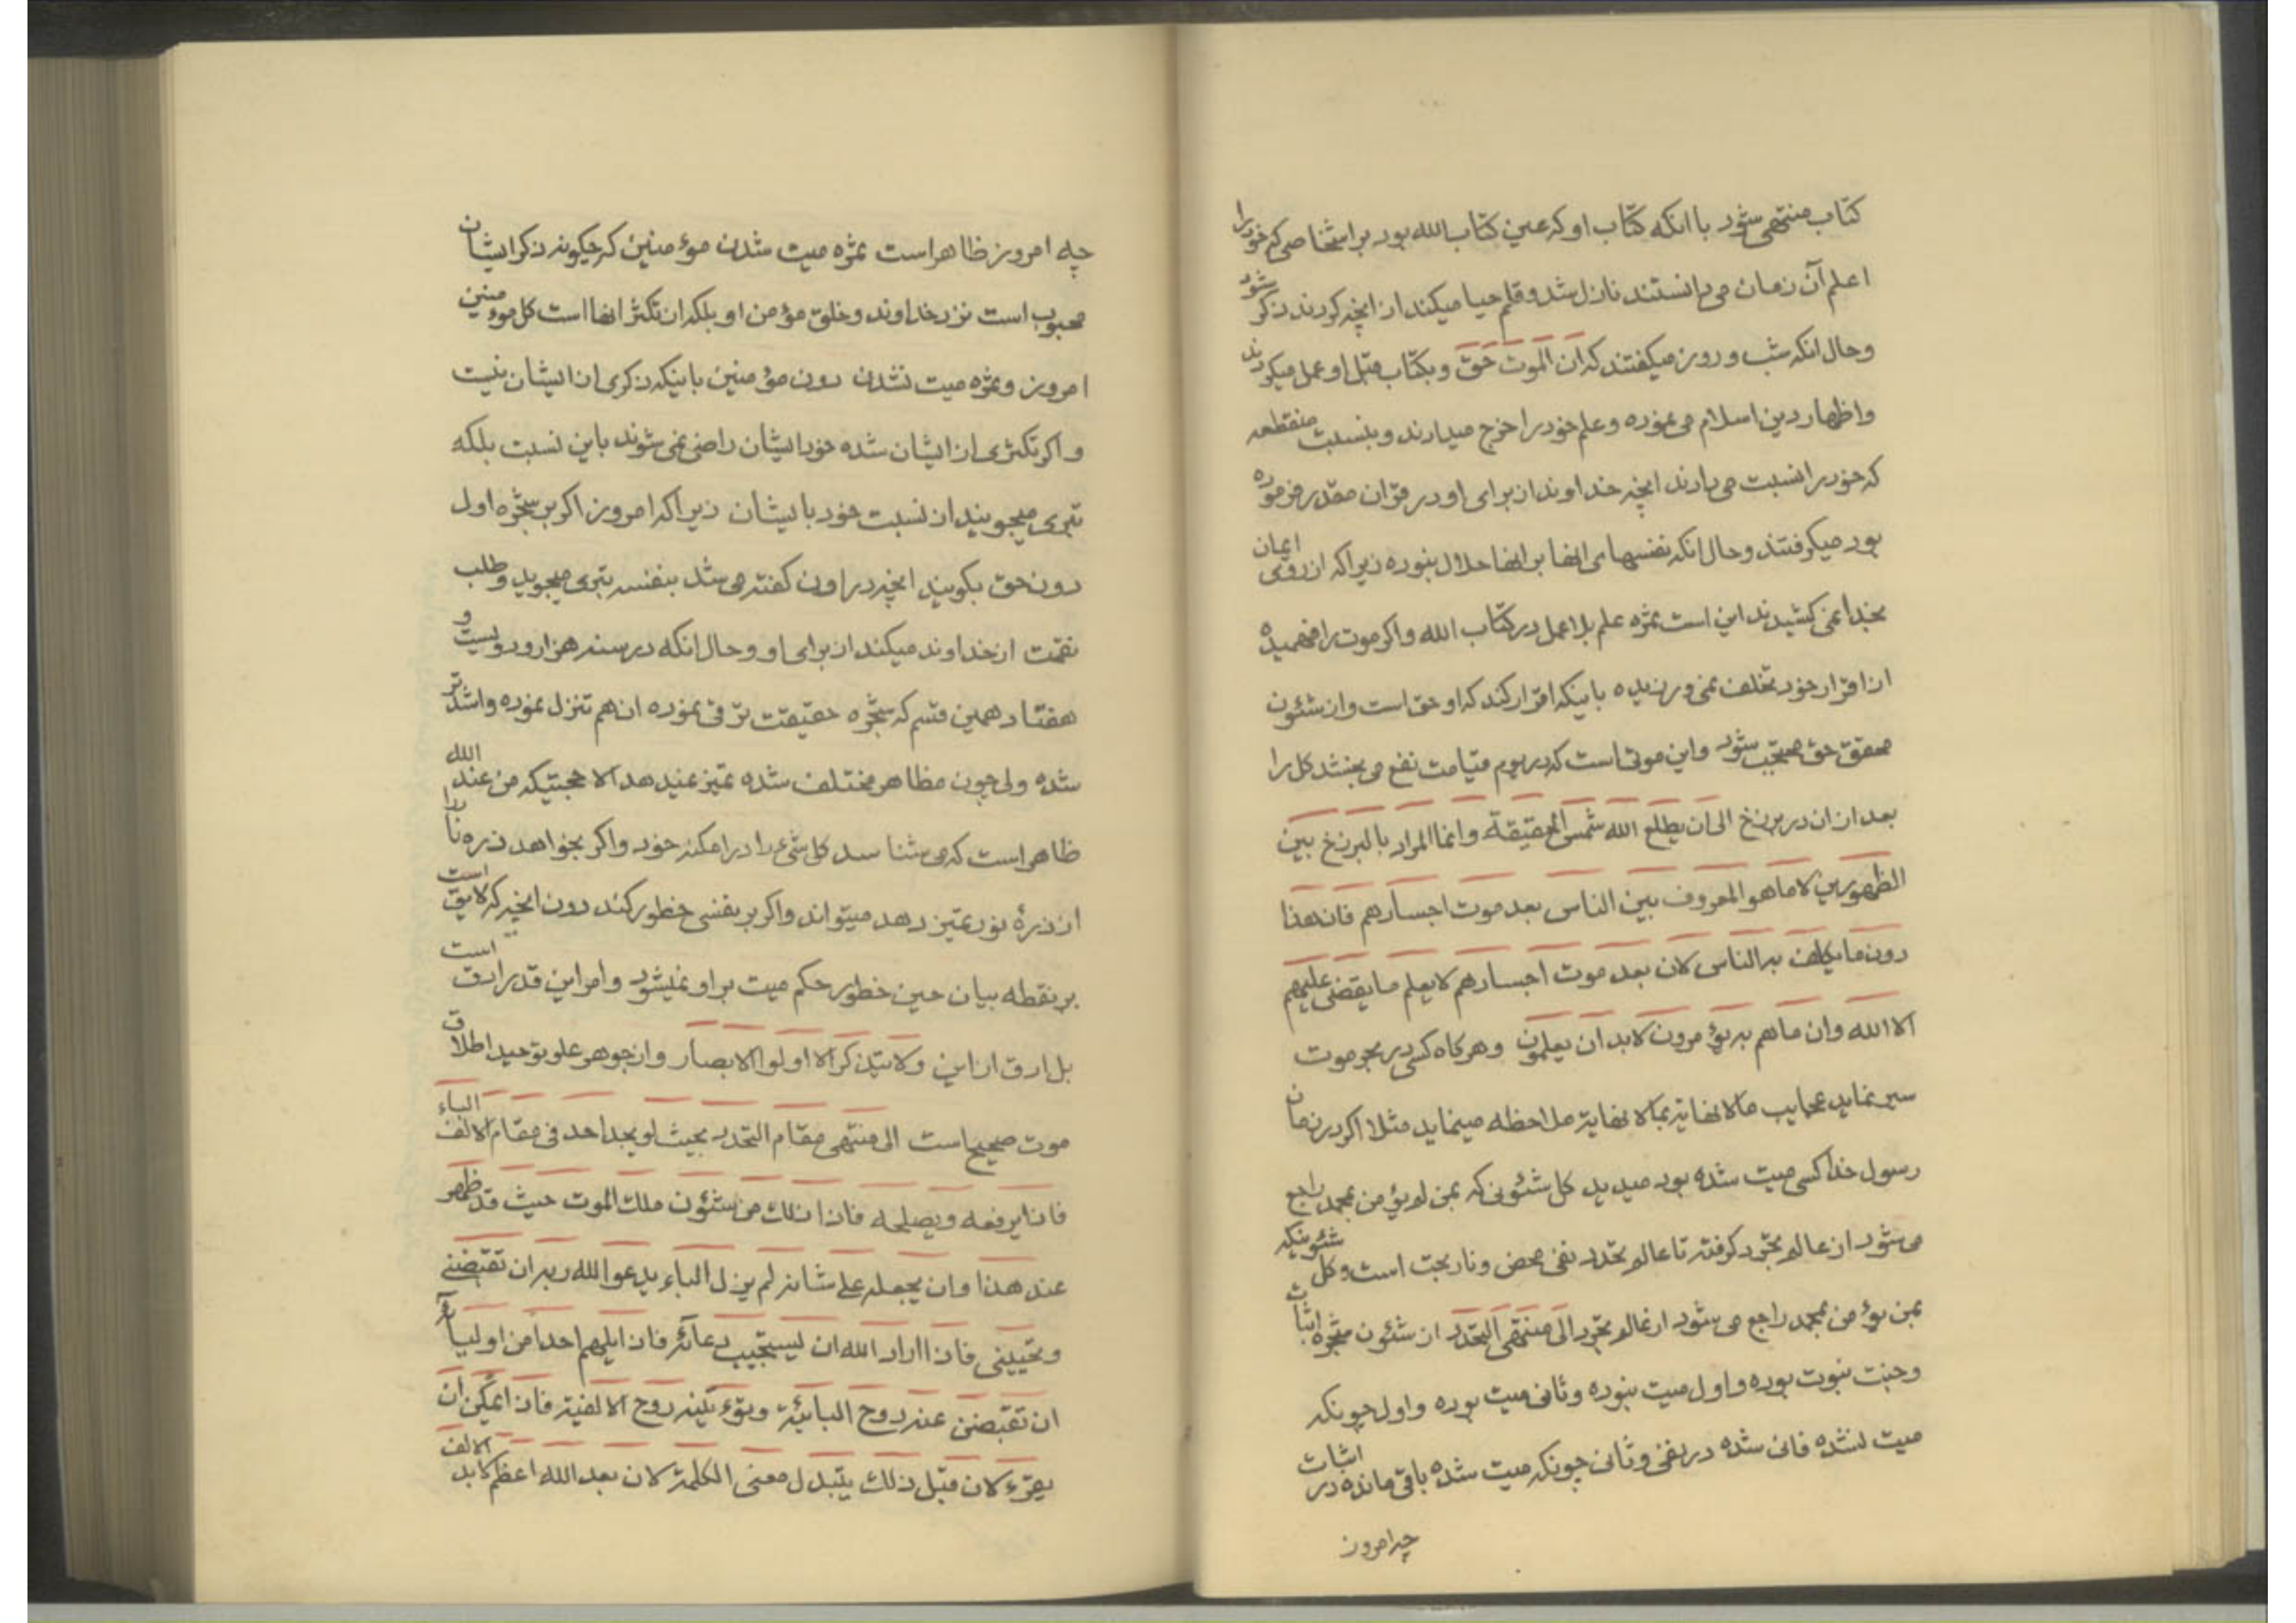 کتاب منتهی شود با انکه کتاب او که عین کتاب الله بود بر اشخاصی که خود را
اعلم آن زمان می دانستند نازل شد و قلم حیا میکند از انچه کردند ذکر شود
وحال انکه شب و روز میکفتند که ان الموت حق و بکتاب قبل او عمل میکردند
واظهار دین اسلام می نموده وعلم خود را اخرج میدارند و بنسبت منقطعه
که خود را نسبت می دادند انچه خداوند از برای او در قرآن مقدر فرموده
بود میکرفتند وحال انکه نفسهای انها بر انها حلال نبوده زیرا که از روی ایمان
بخدا نمی کشیدند این است ثمره علم بلا عمل در کتاب الله واکر موت را فهمیده
از اقرار خود تخلف نمی ورزیده باینکه اقرار کند که او حق است و از شئون
محقق حق محتجب شود واین موتی است که در یوم قیامت نفع می بخشد کل را
بعد از ان در برزخ الی ان یطلع الله شمس الحقیقة وانما المراد بالبرزخ بین
الظهورین لا ما هو المعروف بین الناس بعد موت اجسادهم فان هذا
دون ما یکلف به الناس لان بعد موت اجسادهم لا یعلم ما یقضی علیهم
الا الله وان ما هم به یؤمرون لابد ان یعلمون وهر کاه کسی در بحر موت
سیر نماید عجایب ما لا نهایة بما لا نهایة ملاحظه مینماید مثلا اکر در زمان
رسول خدا کسی میت شده بود میدید کل شئونی که بمن لم یؤمن بمحمد راجع
می شود از عالم تجرد کرفته تا عالم تحدد نفی محض و نار بحت است و کل شئونیکه
بمن یؤمن بمحمد راجع می شود از عالم تجرد الی منتهی التحدد از شئون شجره اثبات
وجنت نبوت بوده واول میت نبوده وثانی میت بوده واول چونکه
میت نشده فانی شده در نفی وثانی چونکه میت شده باقی مانده در اثبات
چه امروز
چه امروز ظاهر است ثمره میت شدن مؤمنین که چکونه ذکر ایشان
محبوب است نزد خداوند وخلق مؤمن او بلکه از تکثر انها است کل مومنین
امروز وثمره میت نشدن دون مؤمنین باینکه ذکری از ایشان نیست
واکر تکثری از ایشان شده خود ایشان راضی نمی شوند باین نسبت بلکه
تبری میجویند از نسبت خود بایشان زیرا که امروز اکر بر شجره اول
دون حق بکویند انچه در اون کفته می شد بنفسه تبری میجوید وطلب
نقمت از خداوند میکند از برای او وحال انکه در سنه هزار ودویست و
هفتاد همین قسم که شجره حقیقت ترقی نموده ان هم تنزل نموده واشدتر
شده ولی چون مظاهر مختلف شده تمیز نمیدهد الا حجتیکه من عند الله
ظاهر است که می شناسد کل شیء را در امکنه خود واکر بخواهد ذره نار را
از ذرهٔ نور تمیز دهد میتواند واکر بر نفسی خطور کند دون انچه که لایق است
بر نقطه بیان حین خطور حکم میت بر او نمیشود وامر این قدر ادق است
بل ادق از این ولا یتذکر الا اولوا الابصار واز جوهر علو توحید اطلاق
موت صحیح است الی منتهی مقام التحدد بحیث لو یجد احد فی مقام الالف الباء
فاذا یرفعه ویصلحه فاذا ذلک من شئون ملک الموت حیث قد ظهر
عند هذا وان یجعله علی شانه لم یزل الباء یدعو الله ربه ان تقبضنی
وتحیینی فاذا اراد الله ان یستجیب دعائه فاذا یلهم احدا من اولیائه
ان تقبضن عنه روح البائیة ویؤتینه روح الالفیة فاذا یمکن ان
یقرء لان قبل ذلک یتبدل معنی الکلمة لان بعد الله اعظم لابد الالف